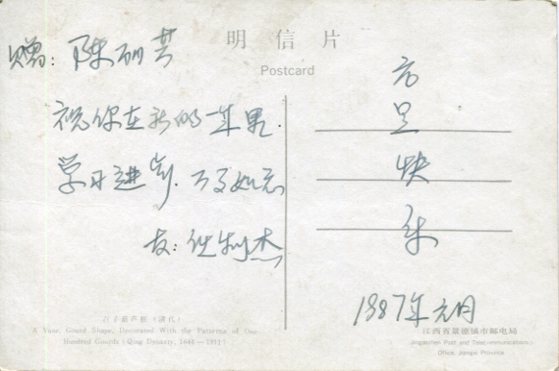 明信片
Postcard
赠：陈丽芳
祝你在新的一年里.
学习进步.万事如意
友：任利杰
元
旦
快
乐
1987年元月
百子葫芦瓶（清代）
A Vase, Gourd Shape, Decorated With the Patterns of One
Hundred Gourds (Qing Dynasty, 1644—1911)
江西省景德镇市邮电局
Jingdezhen Post and Telecommunications
Office, Jiangxi Province